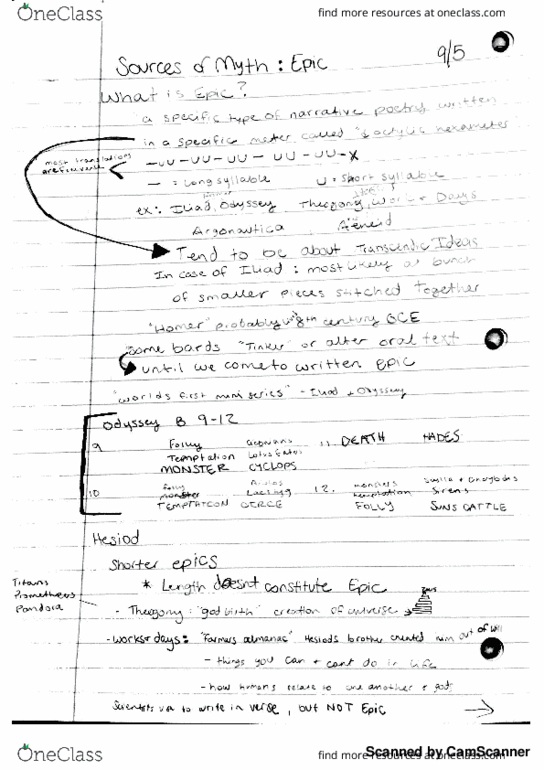 OneClass
find more resources at oneclass.com
9/5
Sources of Myth : Epic
What is Epic?
a specific type of narrative poetry written
in a specific meter called "dactylic hexameter
most translations
are free verse
–UU –UU –UU – UU –UU –X
– = Long syllable U = Short syllable
ex: Iliad, Odyssey Theogony, Work + Days
Argonautica Aeneid
Tend to be about Transcendic Ideas
In case of Iliad : most likely a bunch
of smaller pieces stitched together
"Homer" probably 8th century BCE
some bards "Tinker" or alter oral text
until we come to written Epic
"worlds first mini series" - Iliad + Odyssey
Odyssey B 9-12
9 Folly 11 DEATH HADES
Temptation Lotus Eater
MONSTER CYCLOPS
10 Folly 12. monsters
monster temptation Sirens
TEMPTATION CIRCE FOLLY SUNS CATTLE
Hesiod
Shorter epics
* Length doesnt constitute Epic
Titans
Prometheus
Pandora
- Theogony : "god birth" creation of universe
- works + days : "Farmers almanac" Hesiods brother cheated him out of will
- things you can + cant do in life
- how humans relate to one another + gods
Scientists to write in verse, but NOT Epic
OneClass
find more resources at oneclass.com
Scanned by CamScanner